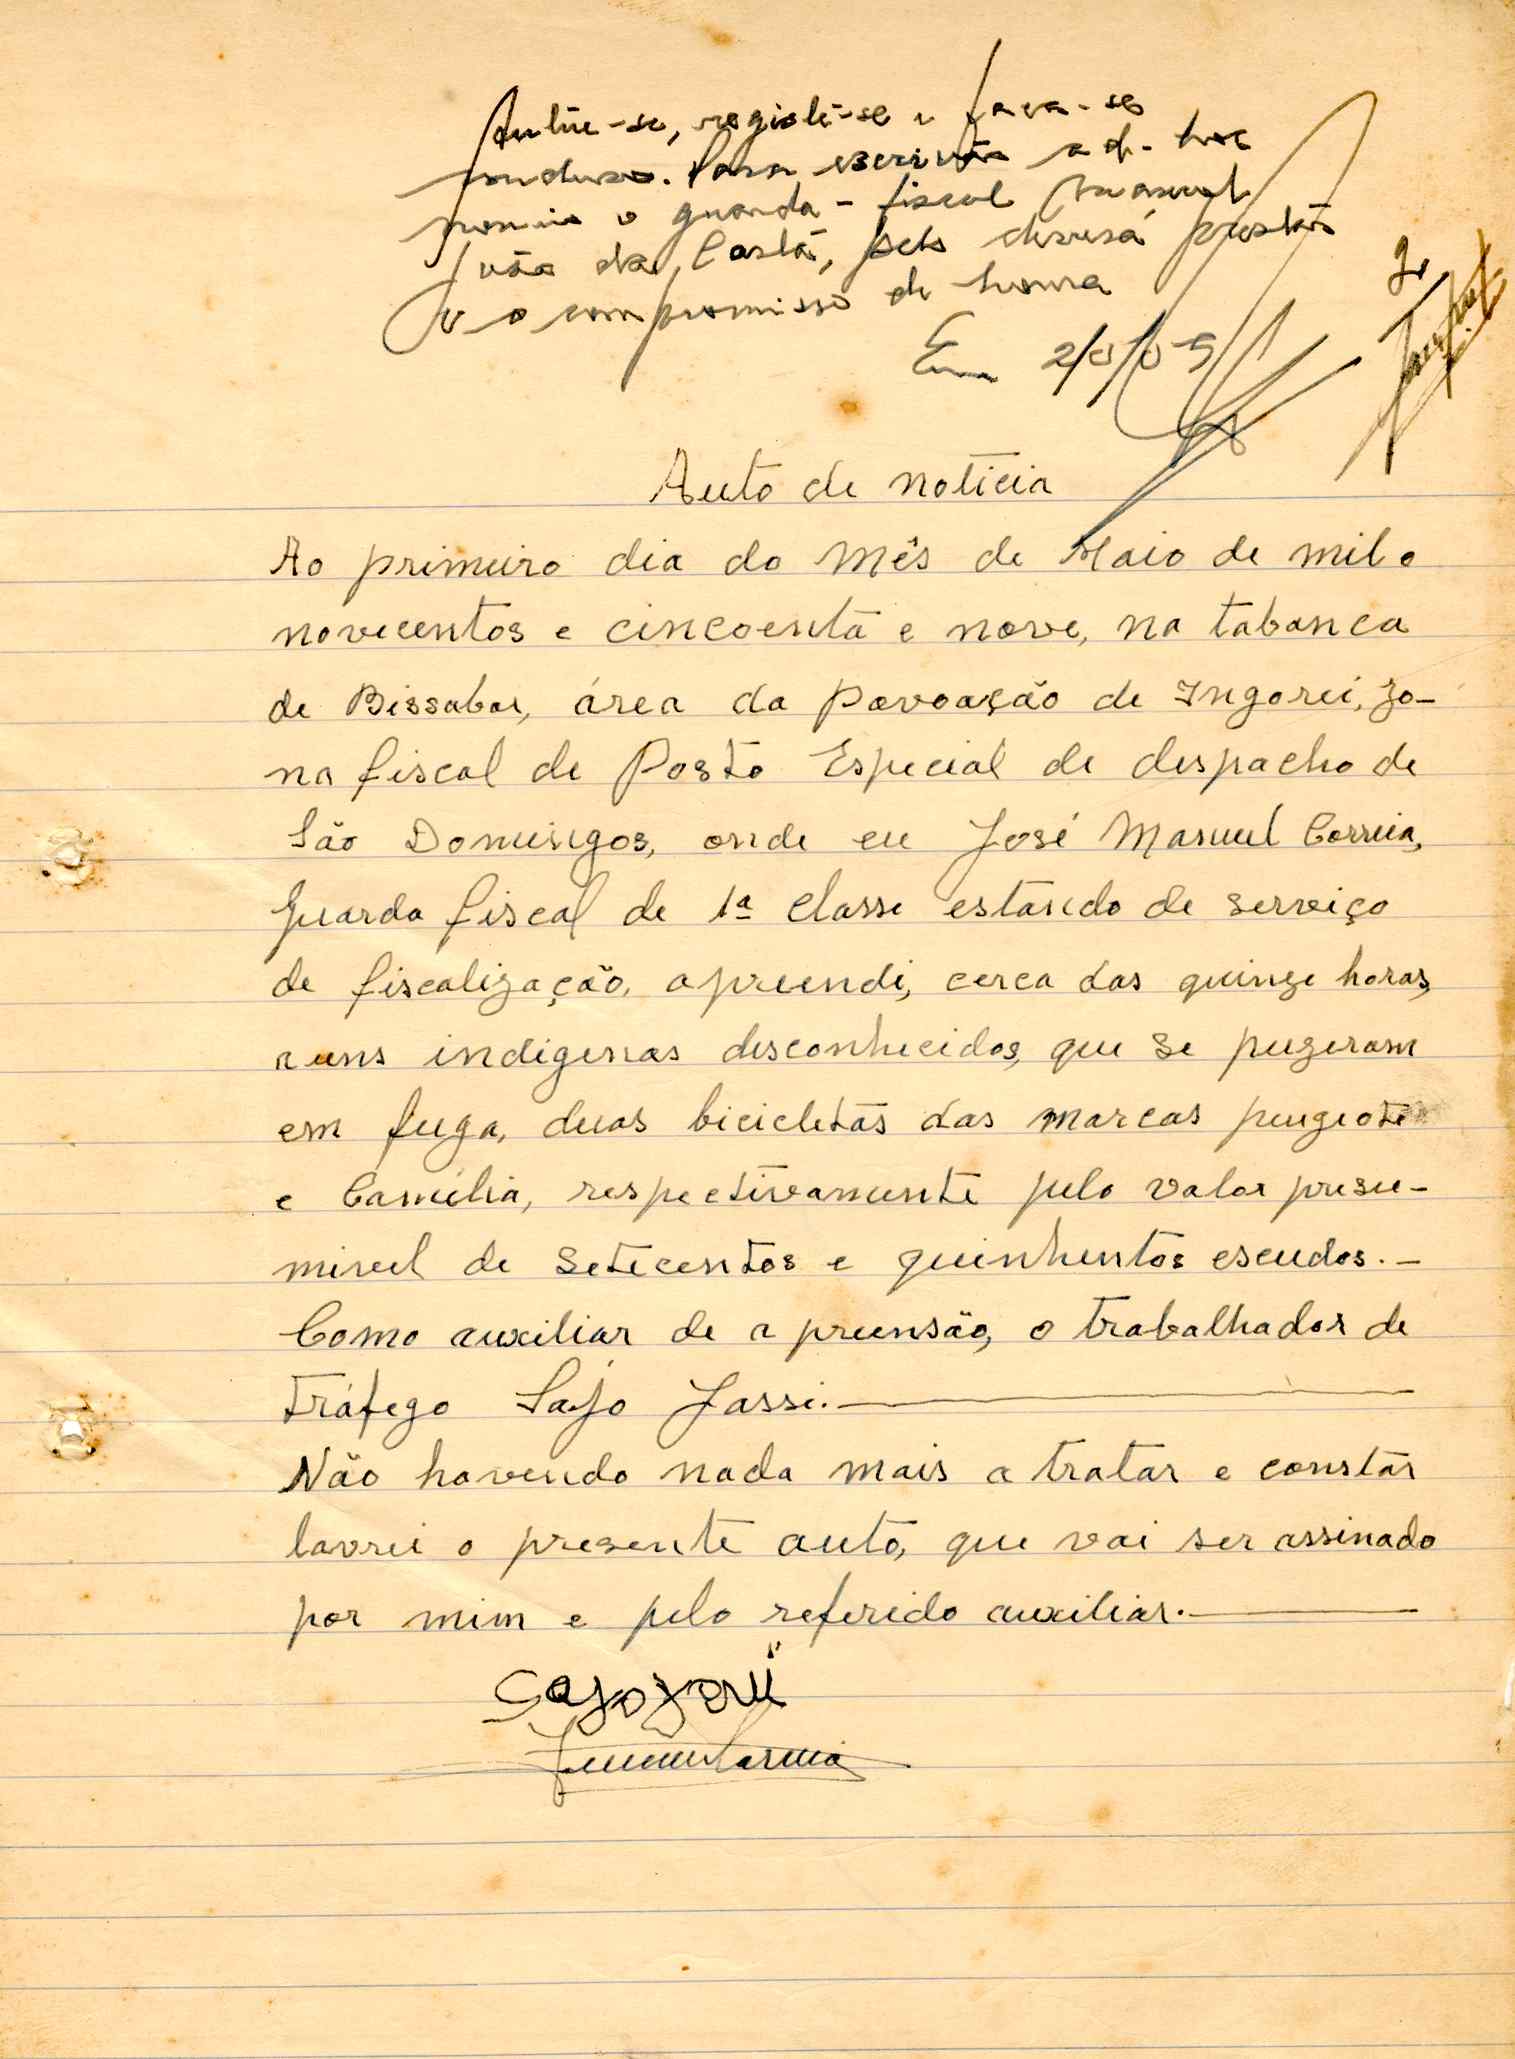 Autue-se, registe-se e faça-se
concluso. Para escrivão ad-hoc
nomeio o guarda-fiscal Manuel
João da Costa, pelo deverá prestar
o compromisso de honra
Em 2/5/959
Auto de noticia
Ao primeiro dia do Mês de Maio de mil e
novecentos e cincoenta e nove, na tabanca
de Bissabor, área da Povoação de Ingorei, zo-
na fiscal de Posto Especial de despacho de
São Domingos, onde eu José Manuel Correia,
Guarda fiscal de 1ª classe estando de serviço
de fiscalização, apreendi, cerca das quinze horas,
a uns indigenas desconhecidos, que se puzeram
em fuga, duas bicicletas das marcas peugeote
e Camélia, respectivamente pelo valor presu-
mivel de setecentos e quinhentos escudos.-
Como auxiliar de apreensão, o trabalhador de
tráfego Sajo Jassi.
Não havendo nada mais a tratar e constar
lavrei o presente auto, que vai ser assinado
por mim e pelo referido auxiliar.
Sajo Jassi